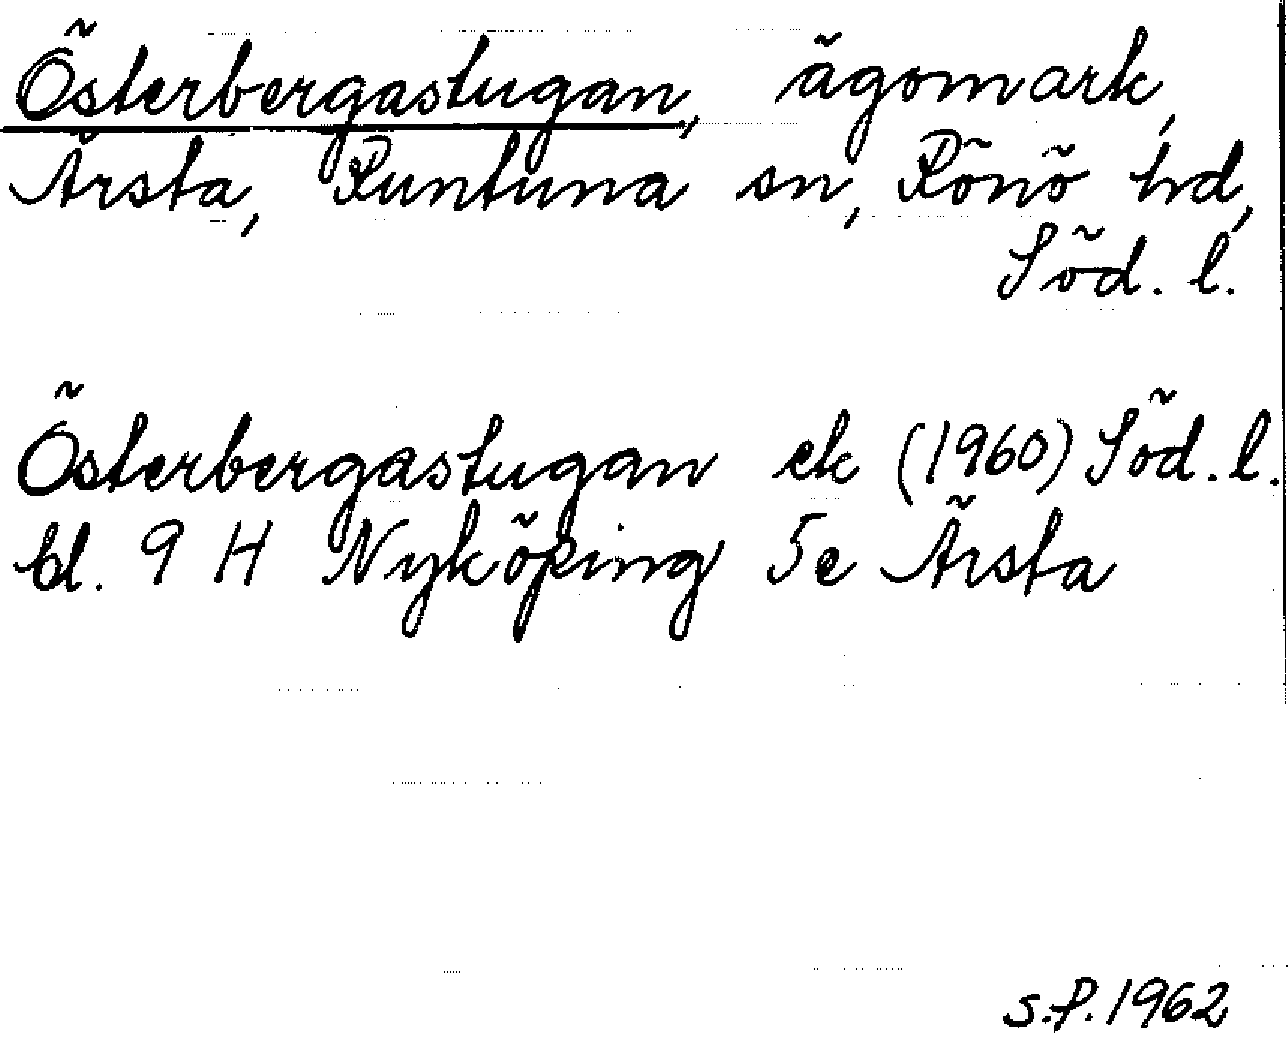 Österbergastugan, ägomark,
Ärsta, Runtuna sn, Rönö hd,
Söd. l.
Österbergastugan ek (1960) Söd. l.
bl. 9 H Nyköping 5e Ärsta
S.P. 1962